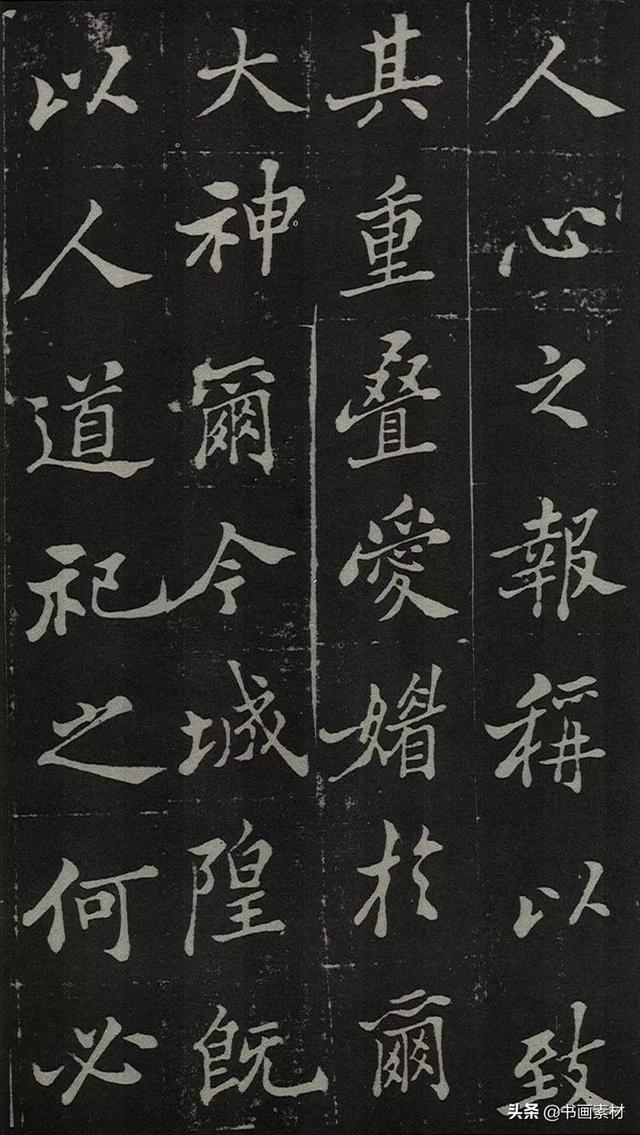 人心之報稱以致
其重叠愛媢於爾
大神爾今城隍既
以人道祀之何必
头条 @书画素材